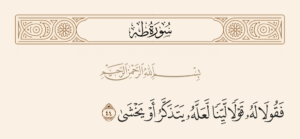 سُورَةُ طه
بِسْمِ اللَّهِ الرَّحْمَٰنِ الرَّحِيمِ
فَقُولَا لَهُۥ قَوْلًا لَّيِّنًا لَّعَلَّهُۥ يَتَذَكَّرُ أَوْ يَخْشَىٰ ٤٤